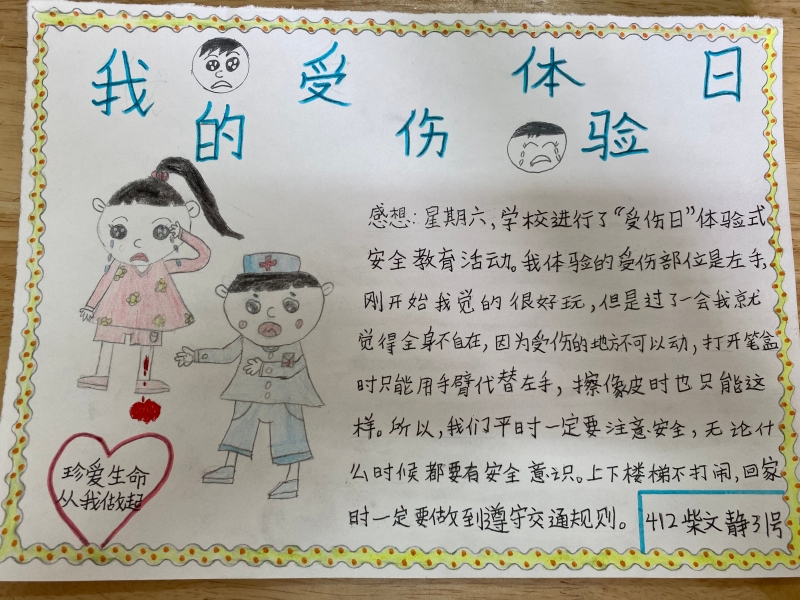 我的受伤体验日
感想:星期六,学校进行了“受伤日”体验式
安全教育活动。我体验的受伤部位是左手,
刚开始我觉的很好玩,但是过了一会我就
觉得全身不自在,因为受伤的地方不可以动,打开笔盒
时只能用手臂代替左手,擦像皮时也只能这
样。所以,我们平时一定要注意安全,无论什
么时候都要有安全意识。上下楼梯不打闹,回家
时一定要做到遵守交通规则。
珍爱生命
从我做起
412柴文静31号